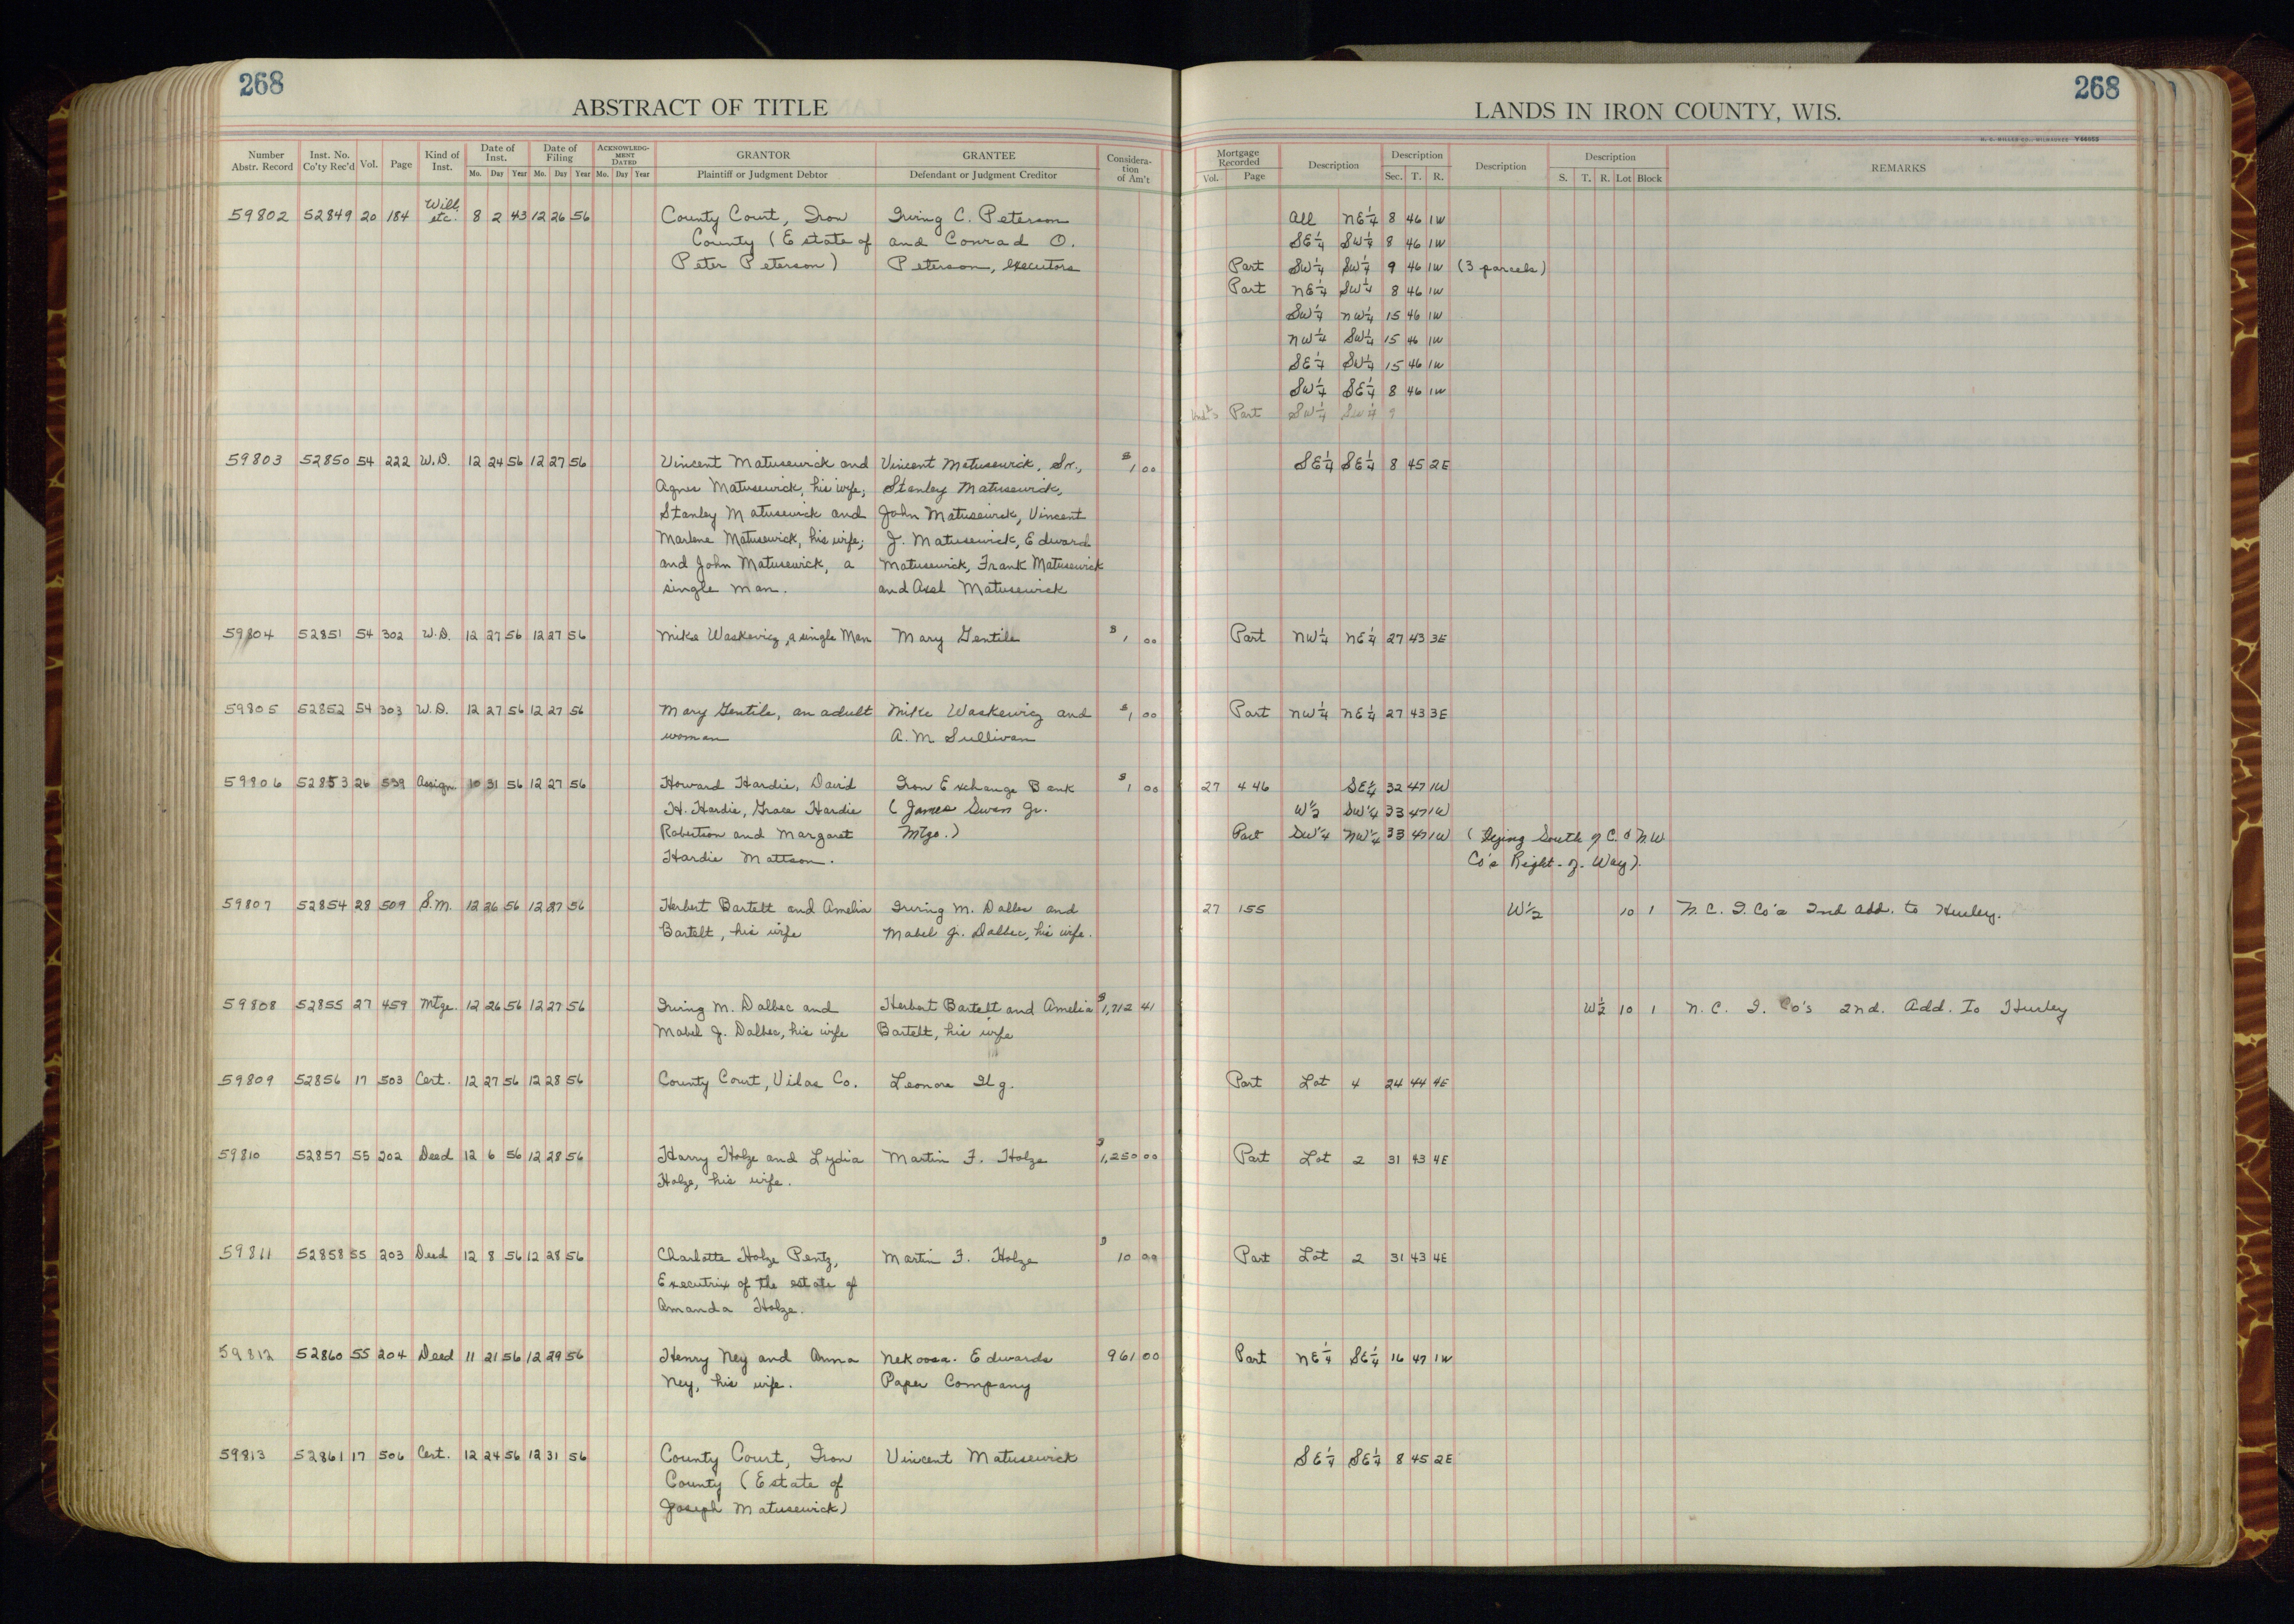 268
ABSTRACT OF TITLE
Number Abstr. Record Inst. No. Co'ty Rec'd Vol. Page Kind of Inst. Date of Inst. Mo. Day Year Date of Filing Mo. Day Year ACKNOWLEDGMENT DATED Mo. Day Year GRANTOR Plaintiff or Judgment Debtor GRANTEE Defendant or Judgment Creditor Consideration of Am't
59802 52849 20 184 Will, etc. 8 2 43 12 26 56 County Court, Iron Irving C. Peterson
County (Estate of and Conrad O.
Peter Peterson) Peterson, executors
59803 52850 54 222 W.D. 12 24 56 12 27 56 Vincent Matusewick and Vincent Matusewick, Sr., $1 00
Agnes Matusewick, his wife; Stanley Matusewick,
Stanley Matusewick and John Matusewick, Vincent
Marlene Matusewick, his wife; J. Matusewick, Edward
and John Matusewick, a Matusewick, Frank Matusewick
single man. and Axel Matusewick
59804 52851 54 302 W.D. 12 27 56 12 27 56 Mike Waskevicz, a single Man Mary Gentile $1 00
59805 52852 54 303 W.D. 12 27 56 12 27 56 Mary Gentile, an adult Mike Waskewicz and $1 00
woman A. M. Sullivan
59806 52853 26 539 Assign. 10 31 56 12 27 56 Howard Hardie, David Iron Exchange Bank $1 00
H. Hardie, Grace Hardie (James Swan Jr.
Robertson and Margaret Mtge.)
Hardie Mattson.
59807 52854 28 509 S.M. 12 26 56 12 27 56 Herbert Bartelt and Amelia Irving M. Dalbec and
Bartelt, his wife Mabel J. Dalbec, his wife.
59808 52855 27 459 Mtge. 12 26 56 12 27 56 Irving M. Dalbec and Herbert Bartelt and Amelia $1,712 41
Mabel J. Dalbec, his wife Bartelt, his wife
59809 52856 17 503 Cert. 12 27 56 12 28 56 County Court, Vilas Co. Leonore Ilg.
59810 52857 55 202 Deed 12 6 56 12 28 56 Harry Holze and Lydia Martin F. Holze $1,250 00
Holze, his wife.
59811 52858 55 203 Deed 12 8 56 12 28 56 Charlotte Holze Pentz, Martin F. Holze $10 00
Executrix of the estate of
Amanda Holze.
59812 52860 55 204 Deed 11 21 56 12 29 56 Henry Ney and Anna Nekoosa-Edwards 961 00
Ney, his wife. Paper Company
59813 52861 17 506 Cert. 12 24 56 12 31 56 County Court, Iron Vincent Matusewick
County (Estate of
Joseph Matusewick)
268
LANDS IN IRON COUNTY, WIS.
Mortgage Recorded Vol. Page Description Description Sec. T. R. Description Description S. T. R. Lot Block REMARKS
All NE¼ 8 46 1W
SE¼ SW¼ 8 46 1W
Part SW¼ SW¼ 9 46 1W (3 parcels)
Part NE¼ SW¼ 8 46 1W
SW¼ NW¼ 15 46 1W
NW¼ SW¼ 15 46 1W
SE¼ SW¼ 15 46 1W
SW¼ SE¼ 8 46 1W
Part SW¼ SW¼ 9
SE¼ SE¼ 8 45 2E
Part NW¼ NE¼ 27 43 3E
Part NW¼ NE¼ 27 43 3E
27 446 SE¼ 32 47 1W
W½ SW¼ 33 47 1W
Part SW¼ NW¼ 33 47 1W (Lying South of C. & N.W
Co's Right-of-Way).
27 155 W½ 10 1 N. C. I. Co's 2nd Add. to Hurley.
W½ 10 1 N. C. I. Co's 2nd. Add. To Hurley
Part Lot 4 24 44 4E
Part Lot 2 31 43 4E
Part Lot 2 31 43 4E
Part NE¼ SE¼ 16 47 1W
SE¼ SE¼ 8 45 2E